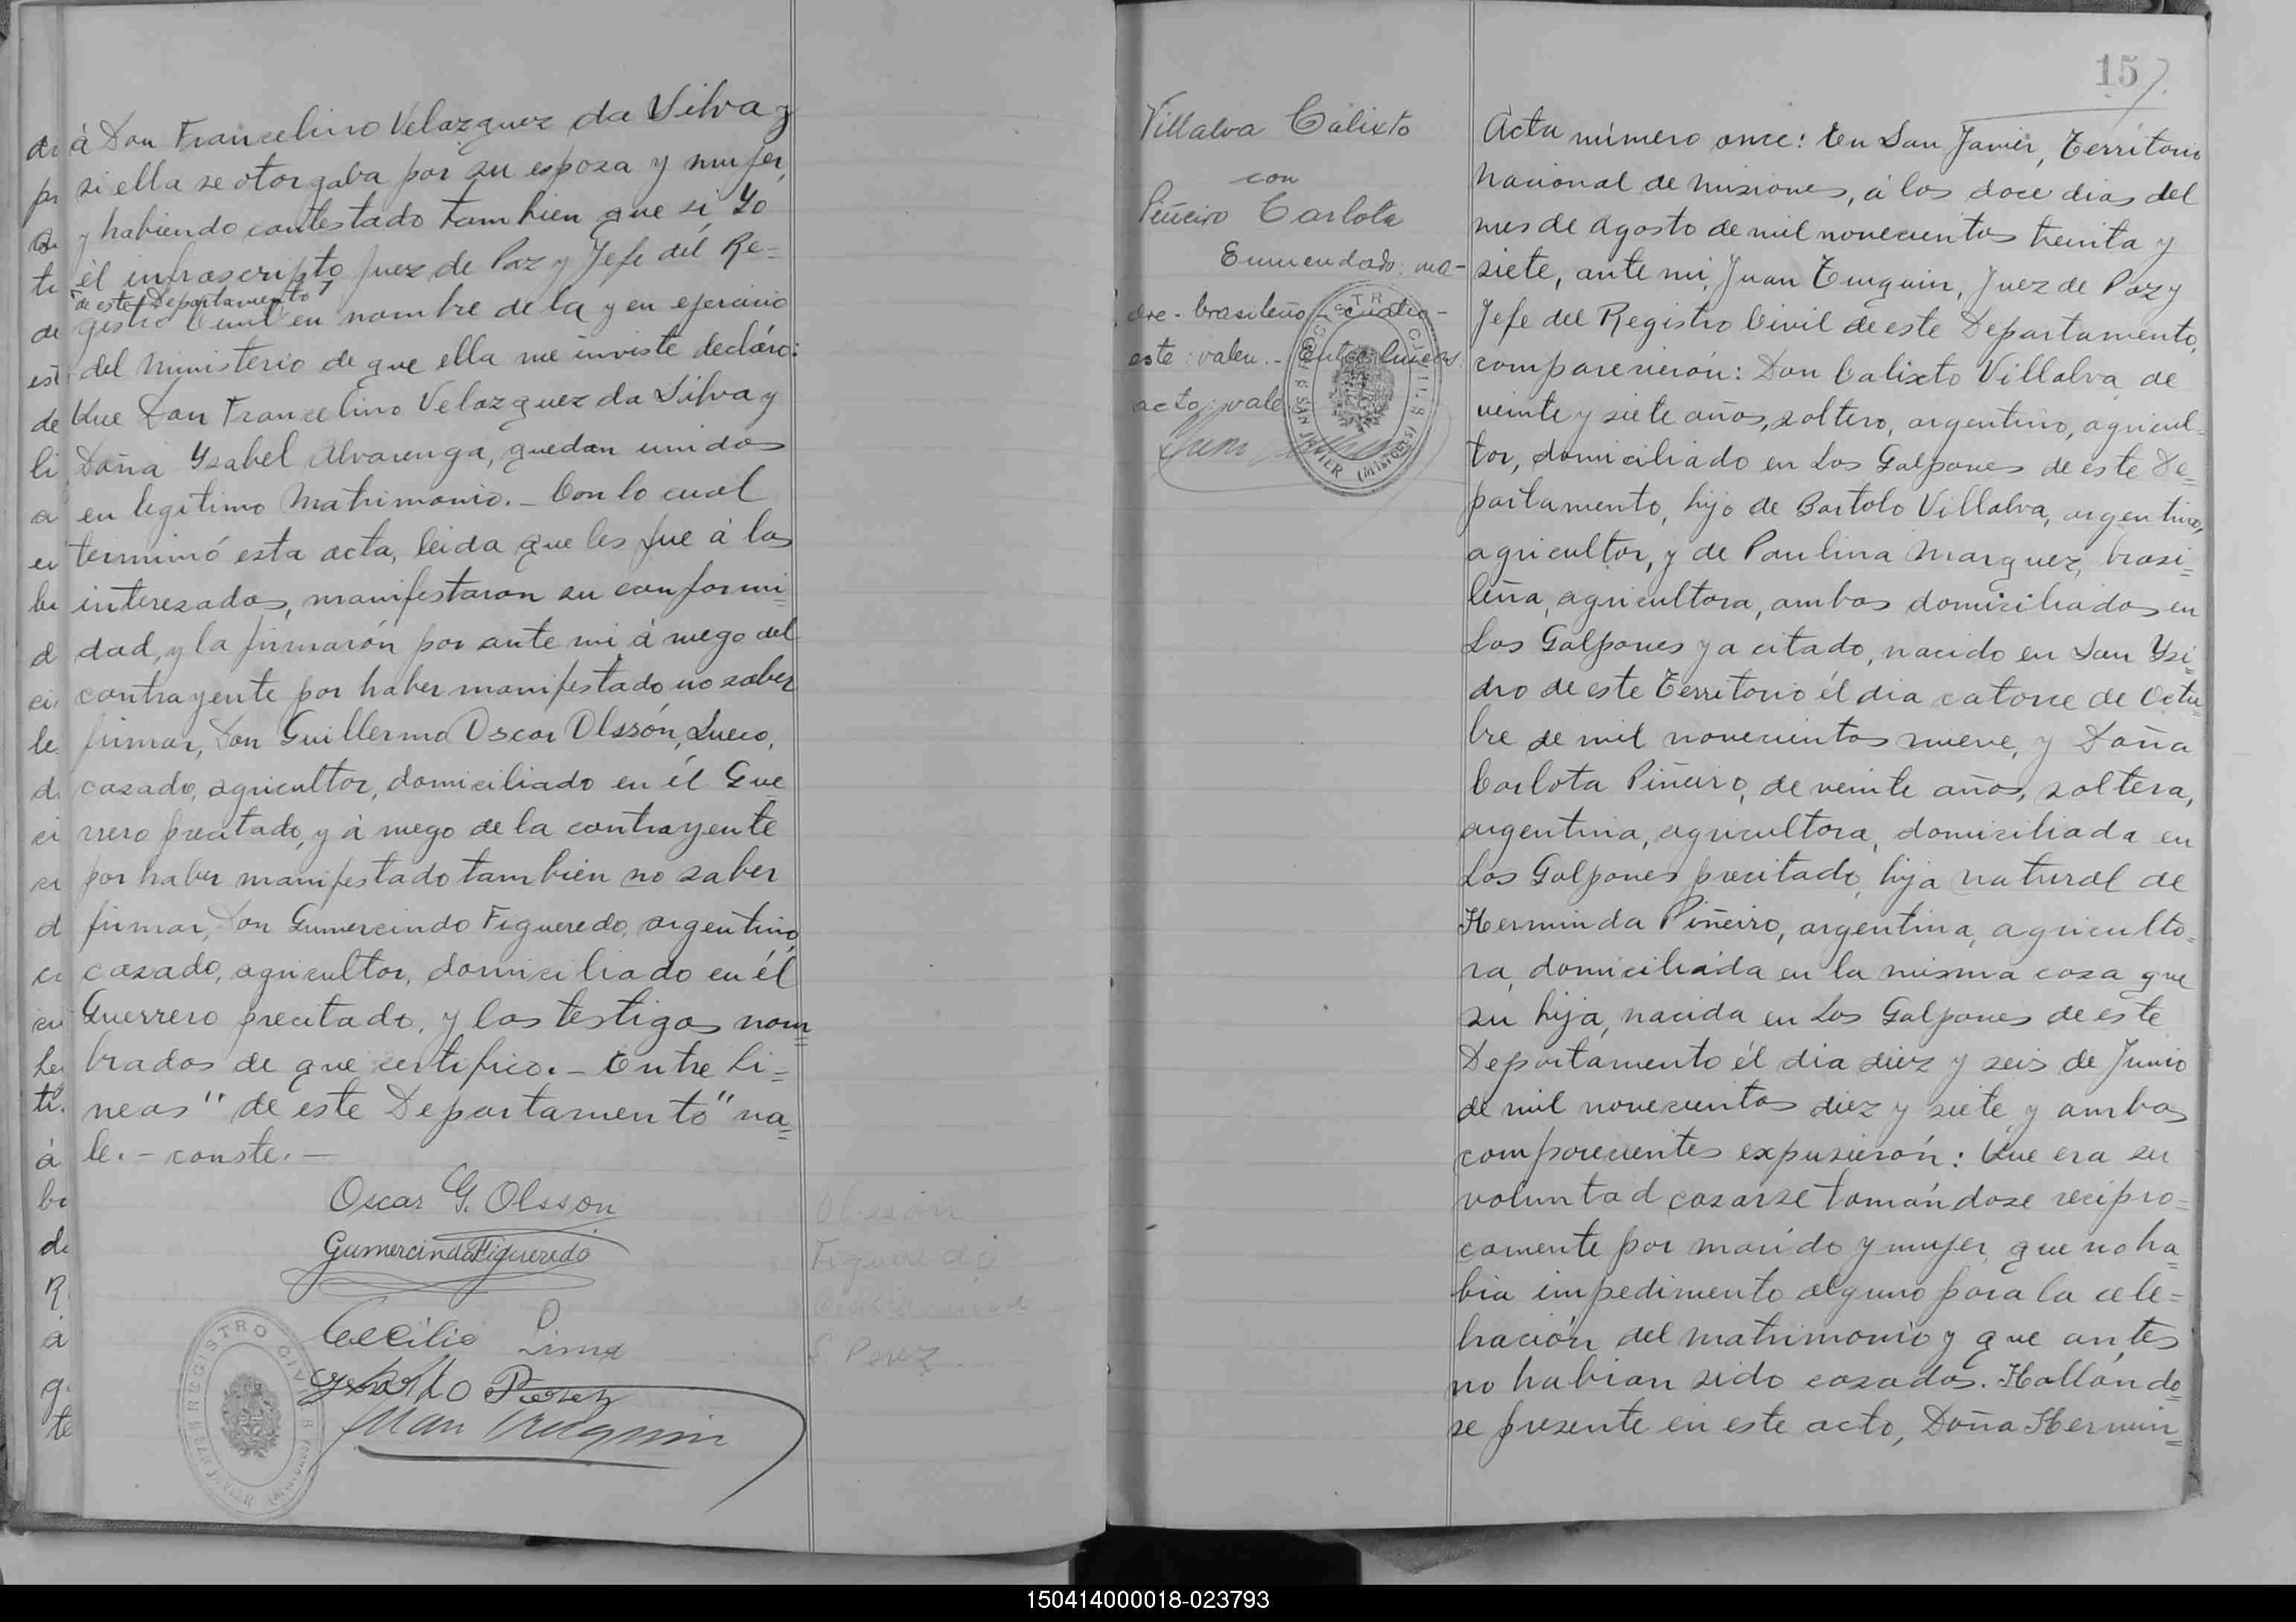 à Don Francelino Velazquez da Silva y
si ella se otorgaba por su esposa y mujer,
y habiendo contestado tambien que si, Yo
él infrascripto Juez de Paz y Jefe del Re=
"de este Departamento"
gistro Civil en nombre de la y en ejercicio
del Ministerio de que ella me inviste decláro:
Que Don Francelino Velazquez da Silva y
Doña Ysabel Alvarenga, quedan unidos
en legitimo Matrimonio.- Con lo cual
terminó esta acta, leida que les fue à los
interesados, manifestaron su conformi=
dad, y la firmarón por ante mi à ruego del
contrayente por haber manifestado no saber
firmar, Don Guillermo Oscar Olssón, Sueco,
casado, agricultor, domiciliado en él Gue
rrero precitado, y à ruego de la contrayente
por haber manifestado tambien no saber
firmar, Don Gumercindo Figueredo, argentino,
casado, agricultor, domiciliado en él
Guerrero precitado, y los testigos nom=
brados de que certifico.- Entre li=
neas "de este Departamento" va=
le.- conste.-
Oscar G. Olsson
Gumercindo Figueredo
Cecilio Lima
Perez
Juan Turquin
REGISTRO CIVIL
SAN JAVIER (MISIONES)
Olssón
Figueredo
Perez
157
Villalva Calixto
con
Piñeiro Carlota
Enmendado: ma-
dre - brasileño - cuatro -
este: valen.- Entre lineas.
acto: vale
REGISTRO CIVIL
SAN JAVIER (MISIONES)
Acta número once: En San Javier, Territorio
Nacional de Misiones, á los doce dias del
mes de Agosto de mil novecientos treinta y
siete, ante mi, Juan Turquin, Juez de Paz y
Jefe del Registro Civil de este Departamento,
comparecierón: Don Calixto Villalva, de
veinte y siete años, soltero, argentino, agricul=
tor, domiciliado en Los Galpones de este De=
partamento, hijo de Bartolo Villalva, argentino,
agricultor, y de Paulina Marquez, brasi=
leña, agricultora, ambos domiciliados en
Los Galpones ya citado, nacido en San Ysi=
dro de este Territorio él dia catorce de Octu=
bre de mil novecientos nueve, y Doña
Carlota Piñeiro, de veinte años, soltera,
argentina, agricultora, domiciliada en
Los Galpones precitado, hija natural de
Herminda Piñeiro, argentina, agriculto=
ra, domiciliada en la misma casa que
su hija, nacida en Los Galpones de este
Departamento él dia diez y seis de Junio
de mil novecientos diez y siete, y ambos
comparecientes expusierón: Que era su
voluntad casarse tomándose recipro=
camente por marido y mujer, que no ha=
bia impedimento alguno para la cele=
bración del matrimonio y que antes
no habian sido casados. Hallándo=
se presente en este acto, Doña Hermin=
150414000018-023793